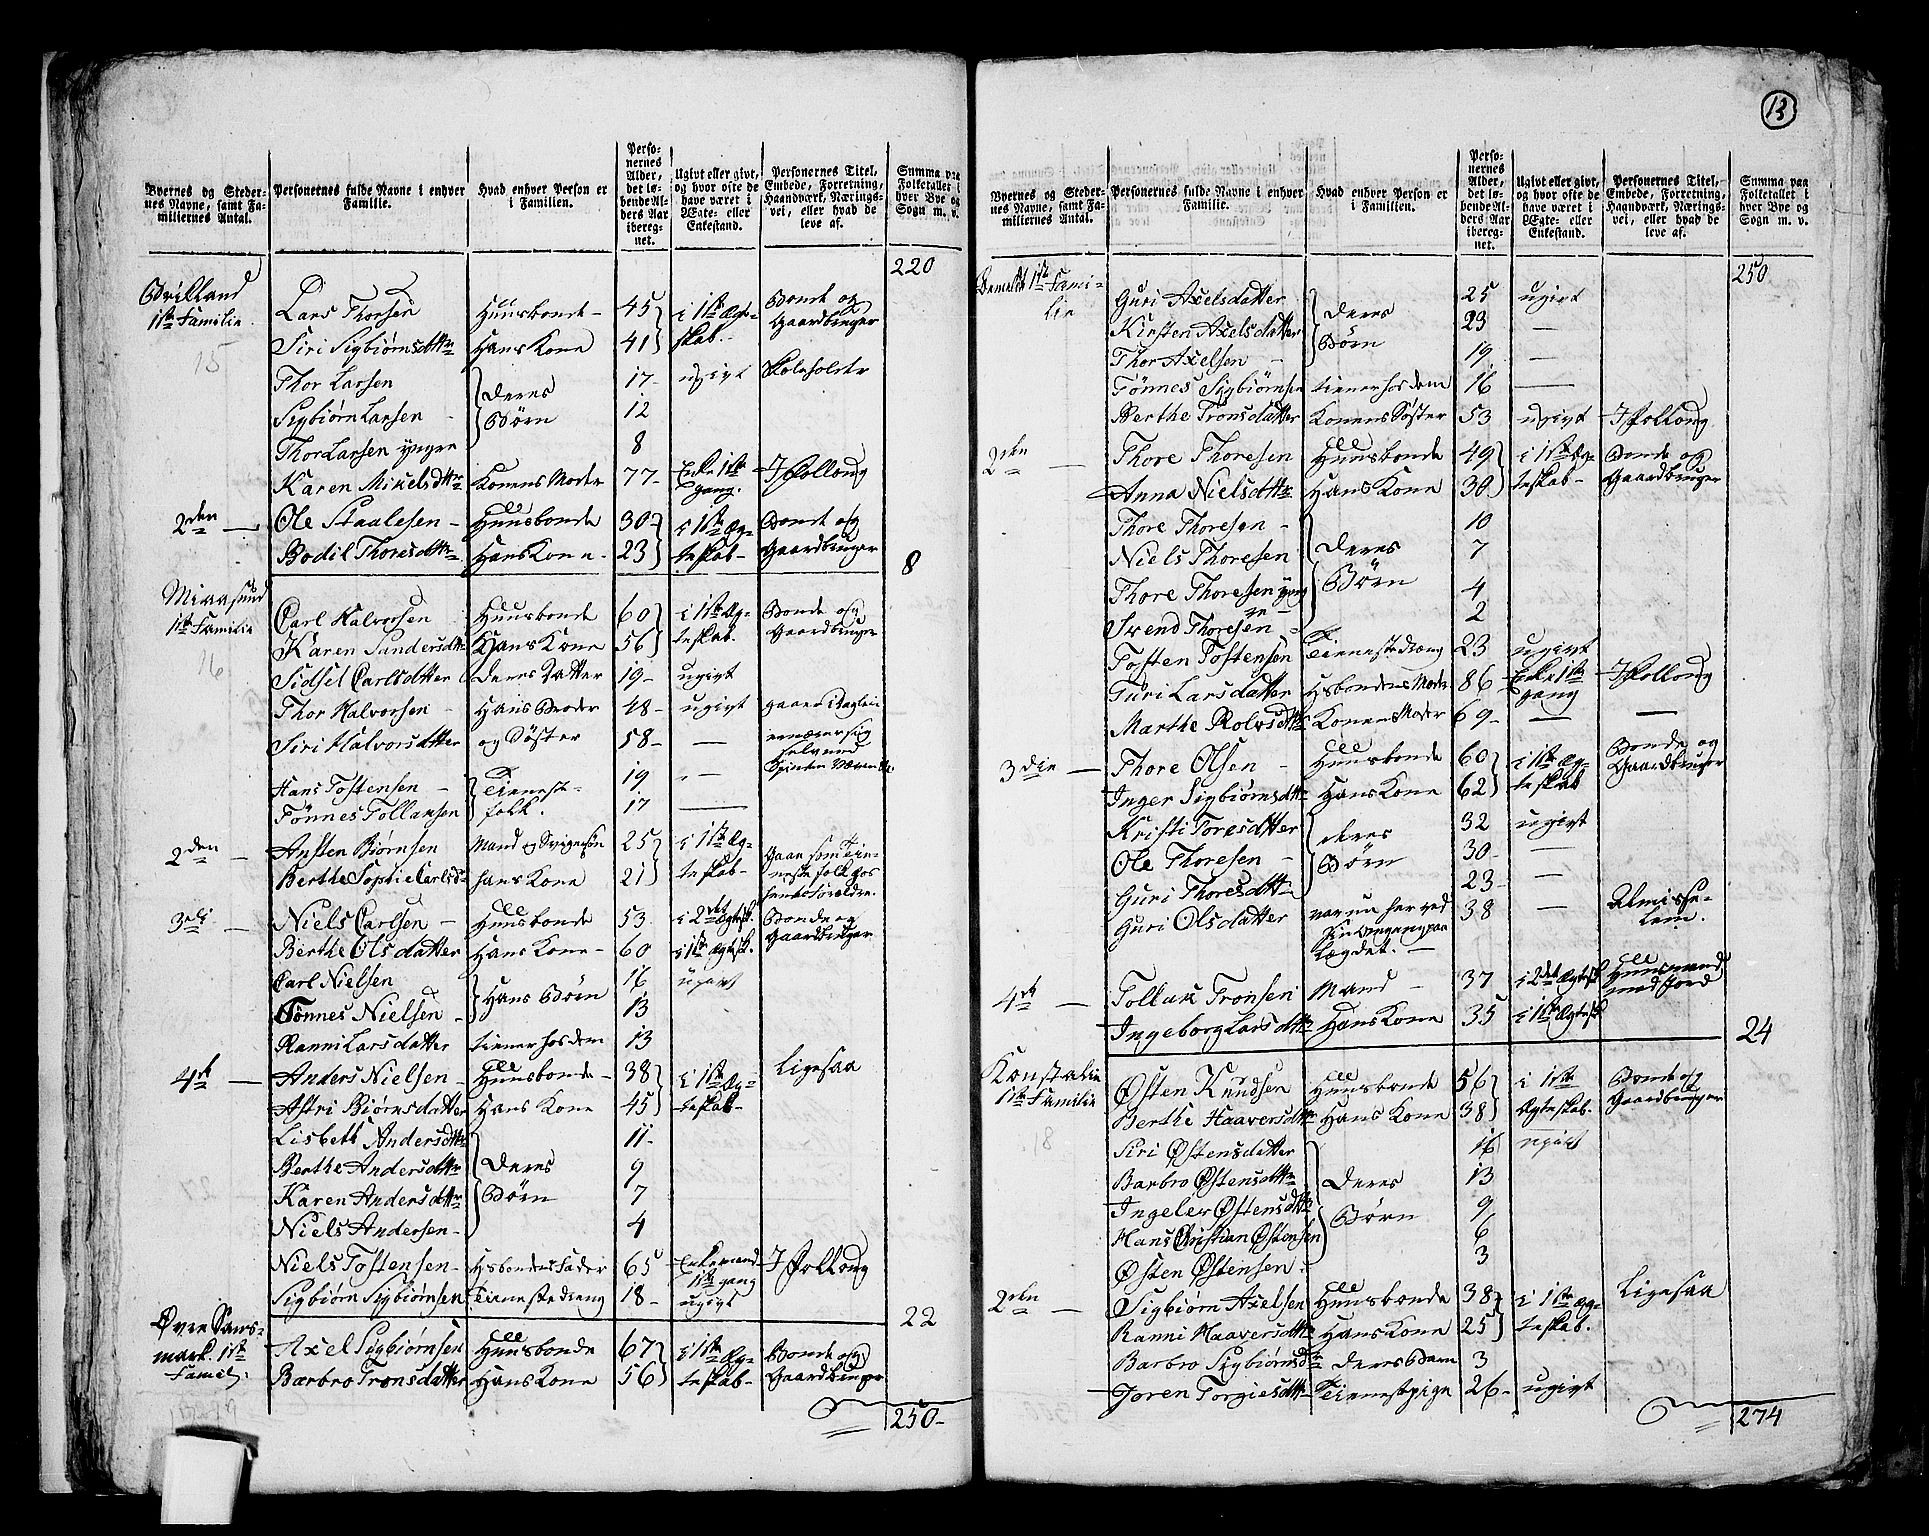 13
Byernes og Stedernes Navne, samt Familiernes Antal.
Personernes fulde Navne i enhver Familie.
Hvad enhver Person er i Familien.
Personernes Alder, det løbende Alders Aar iberegnet.
Ugivt eller givt, og hvor ofte de have været i Ægte- eller Enkestand.
Personernes Titel, Embede, Forretning, Haandværk, Næringsvei, eller hvad de leve af.
Summa paa Folketallet i hver Bye og Sogn m. v.
220
1ste Familie
Lars Thorsen Huusbonde 45 i 1ste Ægteskab Bonde og Gaardbruger
Siri Sigbiørnsdttr Hans Kone 41
15
Thor Larsen Deres Børn 17 ugivt Skoleholder
Sigbiørn Larsen 12
Thor Larsen yngre 8
Karen Mikelsdttr Konens Moder 77 Enke 1ste gang J Follaug
2den Ole Staalesen Huusbonde 30 i 1ste Ægteskab Bonde og Gaardbruger
Bodil Thoresdttr Hans Kone 23
8
Miaasund 1ste Familie
Carl Halvorsen Huusbonde 60 i 1ste Ægteskab Bonde og Gaardbruger
Karen Sandersdttr Hans Kone 56
16
Sidsel Carlsdatter Deres Datter 19 ugivt
Thor Halvorsen Hans Broder 48 ugivt
Siri Halvorsdatter og Søster 58 —
Hans Tostensen Tienestefolk 19 —
Tønnes Tollansen 17 —
2den Ansten Biørnsen Mand og Svigersøn 25 i 1ste Ægteskab
Berthe Sophie Carlsd hans Kone 21
3die Niels Carlsen Huusbonde 53 i 2det Ægtesk. Bonde og Gaardbruger
Berthe Olsdatter Hans Kone 60 i 1ste Ægtesk.
Carl Nielsen Hans Børn 16 ugivt
Tønnes Nielsen 13
Ranni Larsdatter tiener hos dem 13
4de Anders Nielsen Huusbonde 38 i 1ste Ægteskab Ligesaa
Astri Biørnsdatter Hans Kone 45
Lisbeth Andersdttr Deres Børn 11
Berthe Andersdttr 9
Karen Andersdttr 7
Niels Andersen 4
Niels Tostensen Hsbondens Fader 65 Enkemand 1ste gang
Sigbiørn Sigbiørnsen Tienestedreng 18 ugivt
22
Øvre Sansmark. 1ste Famil:
Axel Sigbiørnsen Huusbonde 67 i 1ste Ægteskab Bonde og Gaardbruger
Barbro Tronsdatter Hans Kone 56
250
Byernes og Stedernes Navne, samt Familiernes Antal.
Personernes fulde Navne i enhver Familie.
Hvad enhver Person er i Familien.
Personernes Alder, det løbende Alders Aar iberegnet.
Ugivt eller givt, og hvor ofte de have været i Ægte- eller Enkestand.
Personernes Titel, Embede, Forretning, Haandværk, Næringsvei, eller hvad de leve af.
Summa paa Folketallet i hver Bye og Sogn m. v.
250
Bemeldte 1ste Familie
Guri Axelsdatter Deres Børn 25 ugivt
Kirsten Axelsdatter 23 —
Thor Axelsen 19 —
Tønnes Sigbiørnsen tiener hos dem 16 —
Berthe Tronsdatter Konens Søster 53 ugivt
2den Thore Thoresen Huusbonde 49 i 1ste Ægteskab Bonde og Gaardbruger
Anna Nielsdttr Hans Kone 30
Thore Thoresen Deres Børn 10
Niels Thoresen 7
Thore Thoresen yngre 4
Svend Thoresen 2
Tosten Tostensen Tienestedreng 23 ugivt
Turi Larsdatter Hsbondens Moder 86 Enke 1ste gang
Marthe Rolvsdttr Konens Moder 69 — —
3die Thore Olsen Huusbonde 60 i 1ste Ægteskab Bonde og Gaardbruger
Inger Sigbiørnsdttr Hans Kone 62
Kristi Toresdatter deres Børn 32 ugivt
Ole Thoresen 30 —
Guri Thoresdttr 23 —
Guri Olsdatter 38 — Almisselem.
4de Tollak Tronsen Mand 37 i 2det Ægtesk Huusmand med Jord
Ingeborg Larsdttr Hans Kone 35 i 1ste Ægtesk
24
Konstalie 1ste Familie
Østen Knudsen Huusbonde 56 i 1ste Ægteskab. Bonde og Gaardbruger
Berthe Haaversdttr Hans Kone 38
18
Siri Østensdatter Deres Børn 16 ugivt
Barbro Østensdttr 13
Ingeler Østensdttr 9
Hans Christian Østensen 6
Østen Østensen 3
2den Sigbiørn Axelsen Huusbonde 38 i 1ste Ægteskab. Ligesaa
Ranni Haaversdttr Hans Kone 25
Barbro Sigbiørnsdr Deres Barn 3
Joren Torgiesdttr Tienestepige 26 ugivt
274